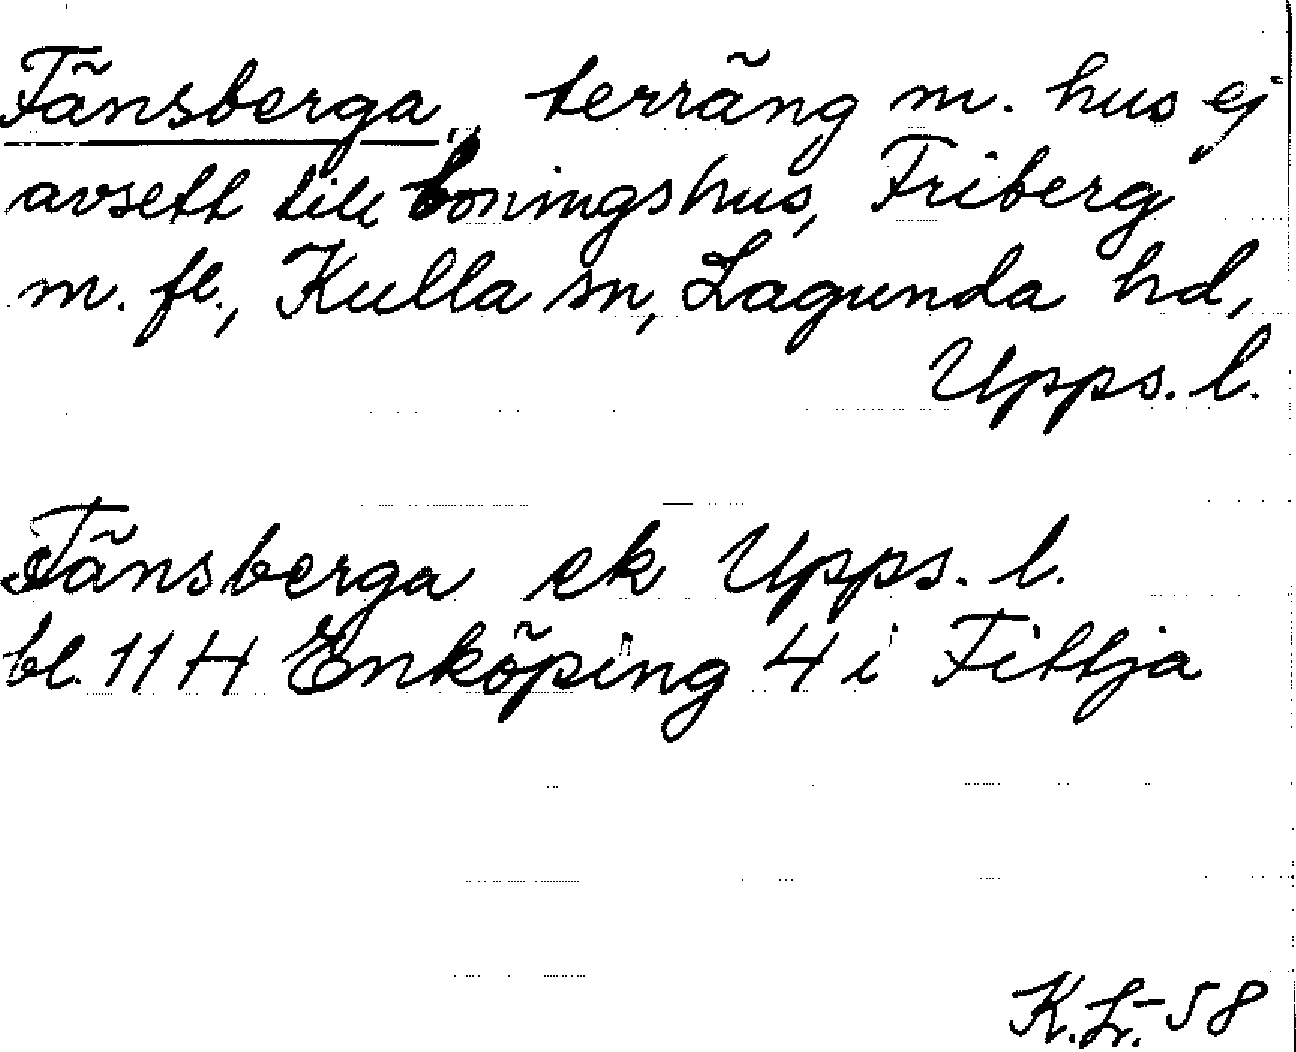 Tänsberga, terräng m. hus ej
avsett till boningshus, Friberg
m. fl., Kulla sn, Lagunda hd,
Upps. l.
Tänsberga ek Upps. l.
bl. 11 H Enköping 4 i Fittja
K. Lr. -58